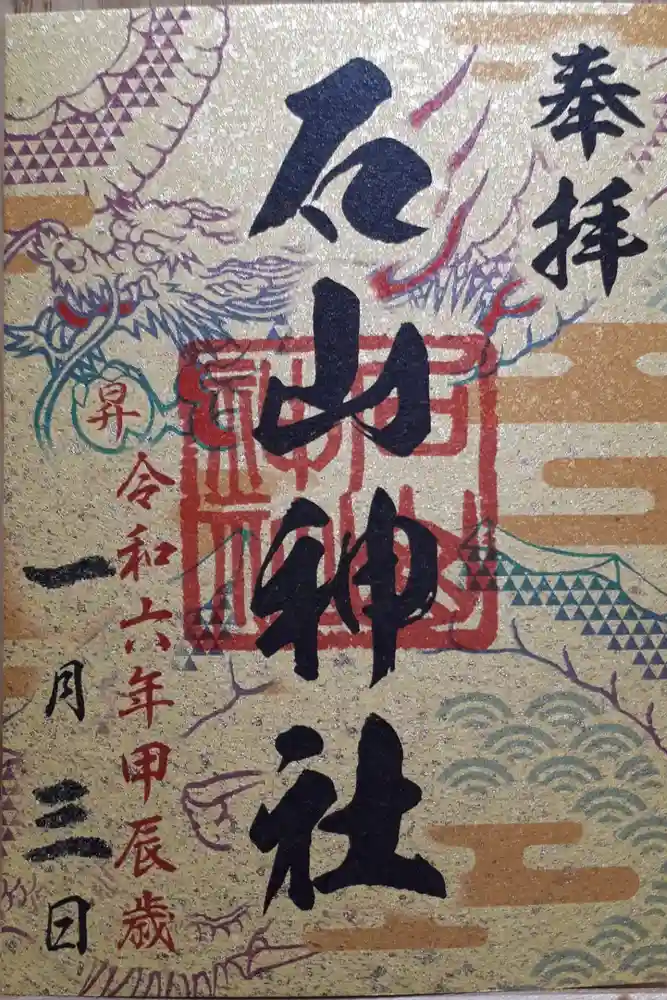 奉拝
石山神社
石山神社
昇
令和六年甲辰歳
一月三日